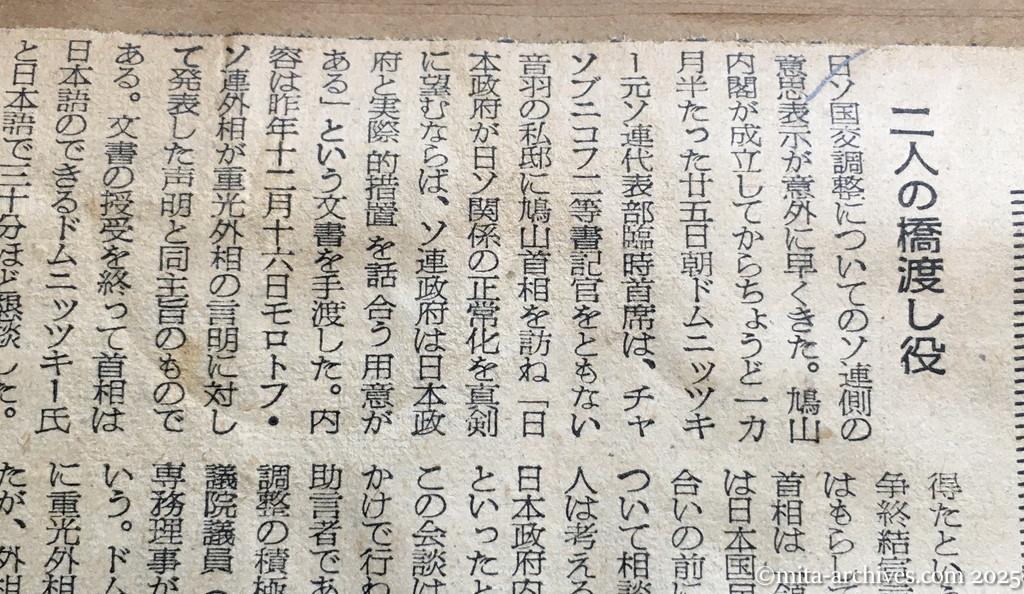 二人の橋渡し役
日ソ国交調整についてのソ連側の
意思表示が意外に早くきた。鳩山
内閣が成立してからちょうど一カ
月半たった廿五日朝ドムニッツキ
ー元ソ連代表部臨時首席は、チャ
ソブニコフ二等書記官をともない
音羽の私邸に鳩山首相を訪ね「日
本政府が日ソ関係の正常化を真剣
に望むならば、ソ連政府は日本政
府と実際的措置を話合う用意が
ある」という文書を手渡した。内
容は昨年十二月十六日モロトフ・
ソ連外相が重光外相の言明に対し
て発表した声明と同主旨のもので
ある。文書の授受を終って首相は
日本語のできるドムニツツキー氏
と日本語で三十分ほど懇談した。
得たという
争終結宣
はもらして
首相は
は日本国民
合いの前に
ついて相談
人は考える
日本政府内
といったと
この会談は
かけで行わ
助言者であ
調整の積極
議院議員
専務理事が
いう。ドム
に重光外相
たが、外相
©mita-archives.com 2025